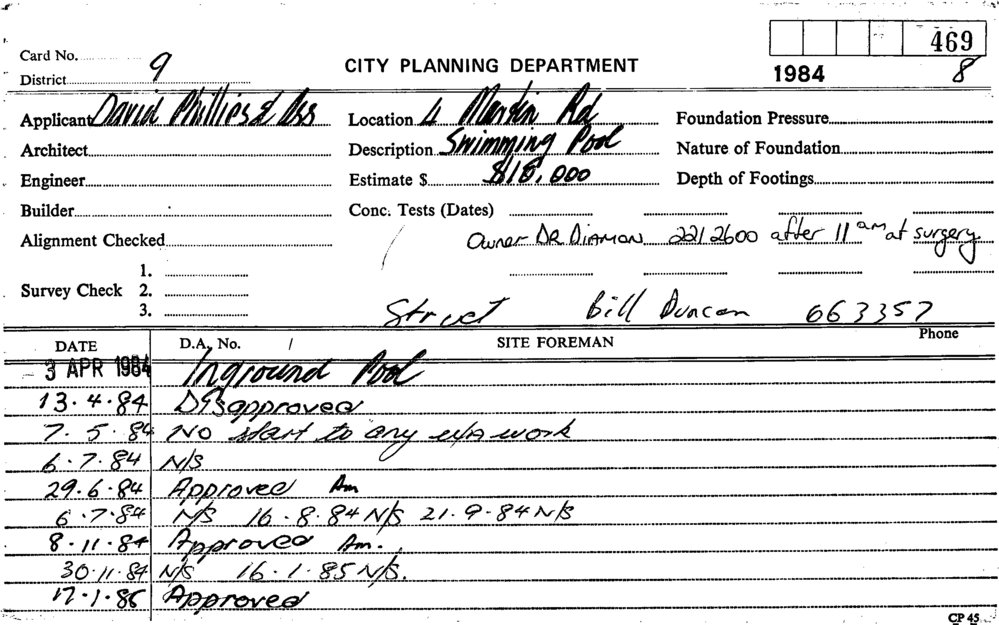 469
Card No. 9
CITY PLANNING DEPARTMENT
1984 8
District
Applicant David Phillips & Ass Location 4 Martin Rd Foundation Pressure
Architect Description Swimming Pool Nature of Foundation
Engineer Estimate $ $18,000 Depth of Footings
Builder Conc. Tests (Dates)
Alignment Checked Owner DR DIAMON 221 2600 after 11 am at surgery
1.
Survey Check 2.
3.
Struct Bill Duncan 663357
DATE D.A. No. / SITE FOREMAN Phone
3 APR 1984 Inground Pool
13.4.84 DB approved
7.5.84 NO start to any work
6.7.84 N/S
29.6.84 Approved Am
6.7.84 N/S 16.8.84 N/S 21.9.84 N/S
8.11.84 Approved Am.
30.11.84 N/S 16.1.85 N/S.
17.1.86 Approved
CP 45